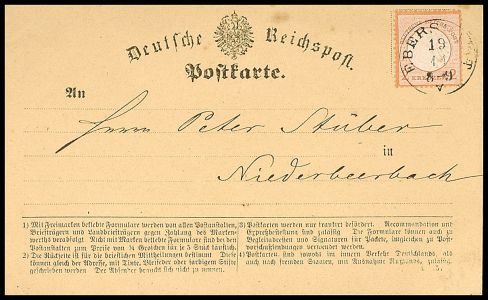 Deutsche Reichspost.
Postkarte.
EBERST
19
5-9
KREUZER
An
Herrn Peter Stüber
in
Niederbeerbach
1) Mit Freimarken beklebte Formulare werden von allen Postanstalten,
Briefträgern und Landbriefträgern gegen Zahlung des Marken-
werths verabfolgt. Nicht mit Marken beklebte Formulare sind bei den
Postanstalten zum Preise von ¼ Groschen für je 5 Stück käuflich.
2) Die Rückseite ist für die brieflichen Mittheilungen bestimmt. Diese
können gleich der Adresse, mit Tinte, Bleifeder oder farbigem Stifte
geschrieben werden. Der Absender braucht sich nicht zu nennen.
3) Postkarten werden nur frankirt befördert. Recommandation und
Expreßbestellung sind zulässig. Die Formulare können auch zu
Begleitadressen und Signaturen für Packete, imgleichen zu Post-
vorschußsendungen verwendet werden.
4) Postkarten sind sowohl im innern Verkehr Deutschlands, als
auch nach fremden Staaten, mit Ausnahme Rußlands, zulässig.
5.